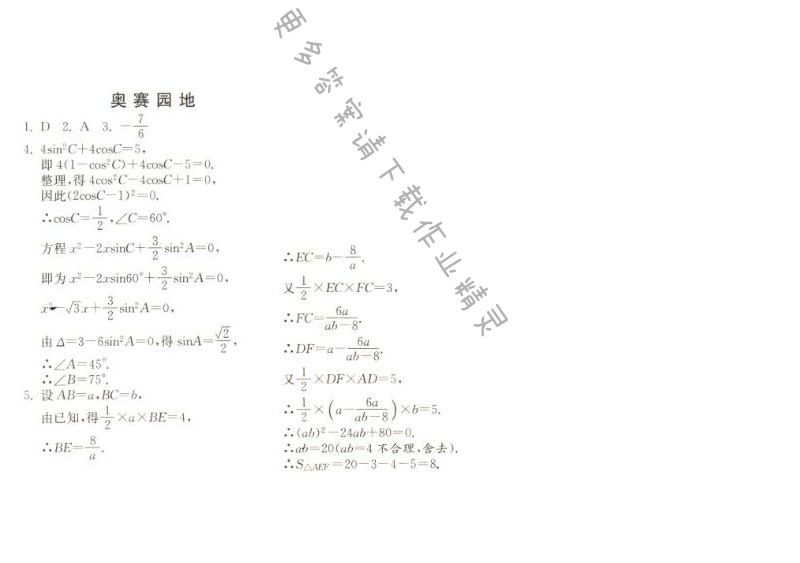 更多答案请下载作业精灵
奥赛园地
1. D 2. A 3. -7/6
4. 4sin²C+4cosC=5,
即 4(1-cos²C)+4cosC-5=0.
整理,得 4cos²C-4cosC+1=0,
因此(2cosC-1)²=0.
∴cosC=1/2,∠C=60°.
方程 x²-2xsinC+3/2 sin²A=0,
即为 x²-2xsin60°+3/2 sin²A=0,
x²-√3x+3/2 sin²A=0,
由 Δ=3-6sin²A=0,得 sinA=√2/2,
∴∠A=45°.
∴∠B=75°.
5. 设 AB=a,BC=b,
由已知,得1/2×a×BE=4,
∴BE=8/a.
∴EC=b-8/a.
又1/2×EC×FC=3,
∴FC=6a/(ab-8).
∴DF=a-6a/(ab-8).
又1/2×DF×AD=5,
∴1/2×(a-6a/(ab-8))×b=5.
∴(ab)²-24ab+80=0.
∴ab=20(ab=4 不合理,舍去).
∴S△AEF=20-3-4-5=8.